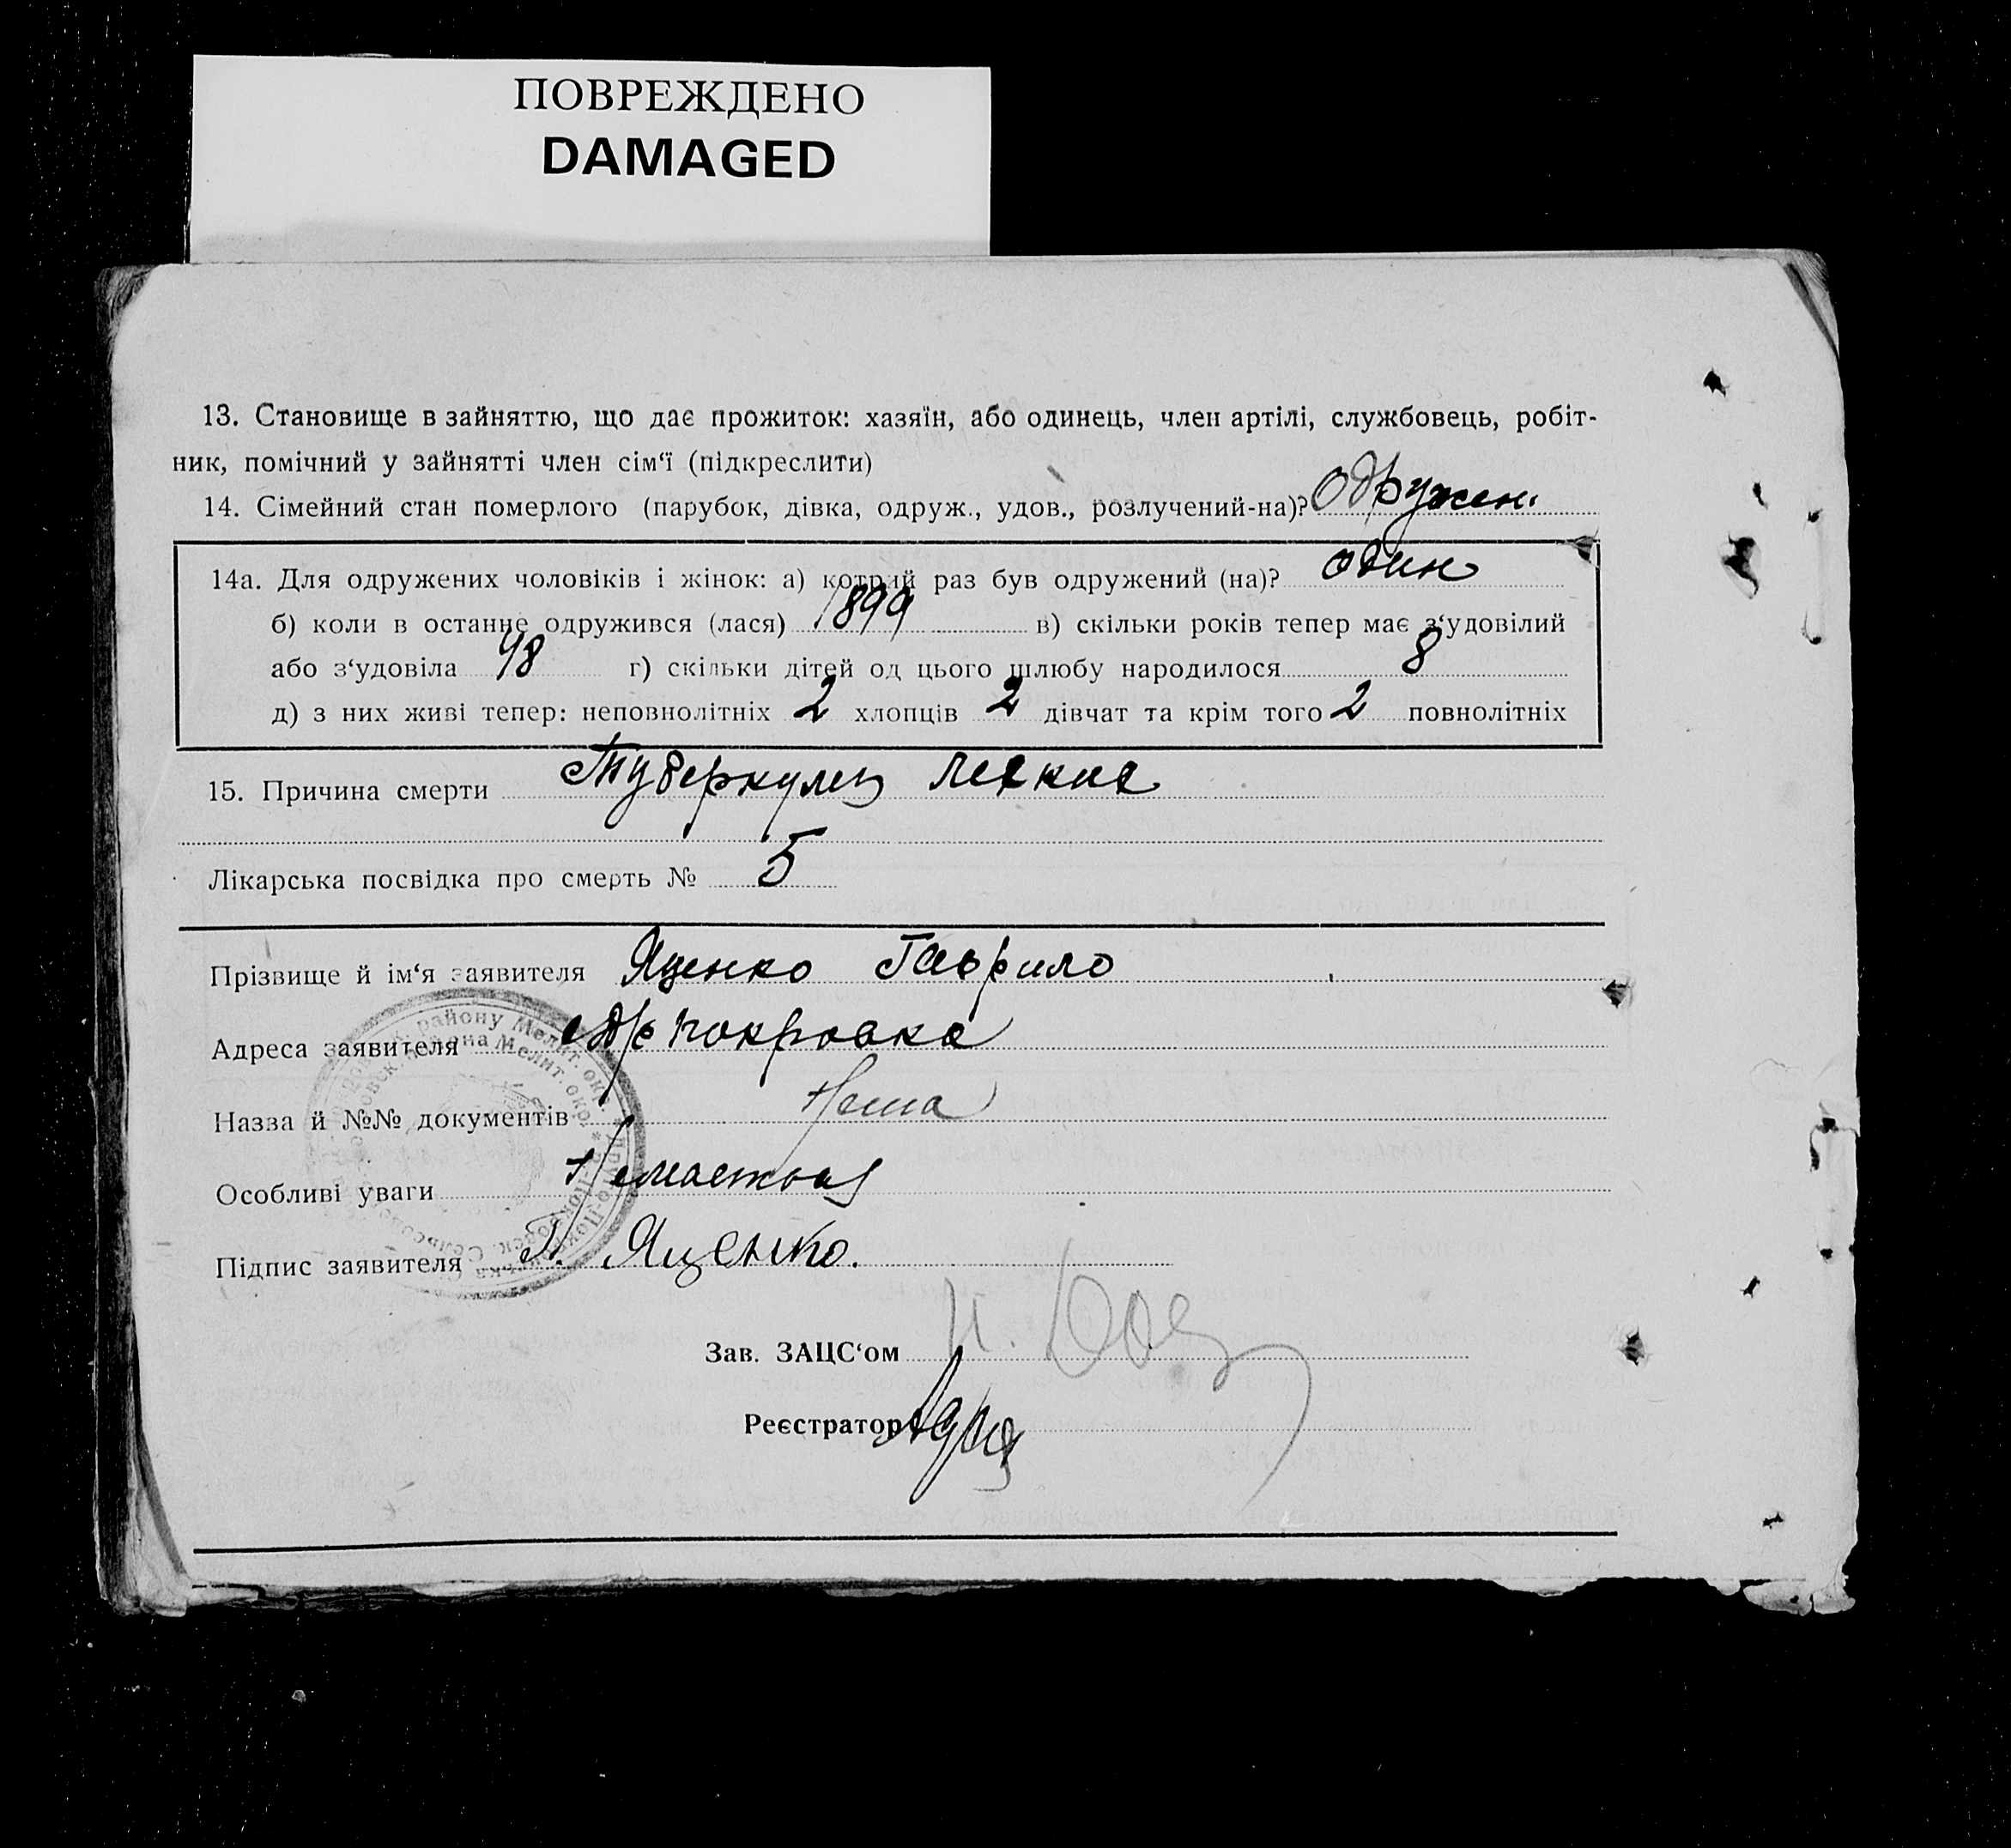 ПОВРЕЖДЕНО
DAMAGED
13. Становище в зайняттю, що дає прожиток: хазяїн, або одинець, член артілі, службовець, робіт-
ник, помічний у зайнятті член сім‘ї (підкреслити)
14. Сімейний стан померлого (парубок, дівка, одруж., удов., розлучений-на)? Одружен.
14а. Для одружених чоловіків і жінок: а) котрий раз був одружений (на)? один
б) коли в останнє одружився (лася) 1899 в) скільки років тепер має з‘удовілий
або з‘удовіла 48 г) скільки дітей од цього шлюбу народилося 8
д) з них живі тепер: неповнолітніх 2 хлопців 2 дівчат та крім того 2 повнолітніх
15. Причина смерти Туберкулез легких
Лікарська посвідка про смерть № 5
Прізвище й ім‘я заявителя Яценко Гаврило
Адреса заявителя Др Покровка
Назва й №№ документів Нема
Особливі уваги
Підпис заявителя Г. Яценко.
Зав. ЗАЦС‘ом
Реєстратор
району Мелит. окр.